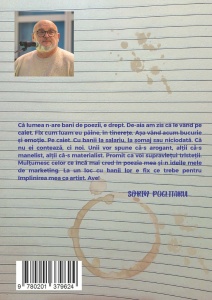 Că lumea n-are bani de poezii, e drept. De-aia am zis că le vând pe
caiet. Fix cum luam eu pâine, în tinerețe. Așa vând acum bucurie
și emoție. Pe caiet. Cu banii la salariu, la șomaj sau niciodată. Că
nu ei contează, ci noi. Unii vor spune că-s arogant, alții că-s
manelist, alții că-s materialist. Fraierii ca voi supraviețui tristeții.
Mulțumesc celor ce încă mai cred în poezia mea și-n ideile mele
de marketing. La un loc cu banii lor e fix ce trebe pentru
împlinirea mea ca artist. Ave!
SORIN POCLITARU
9 780201 379624